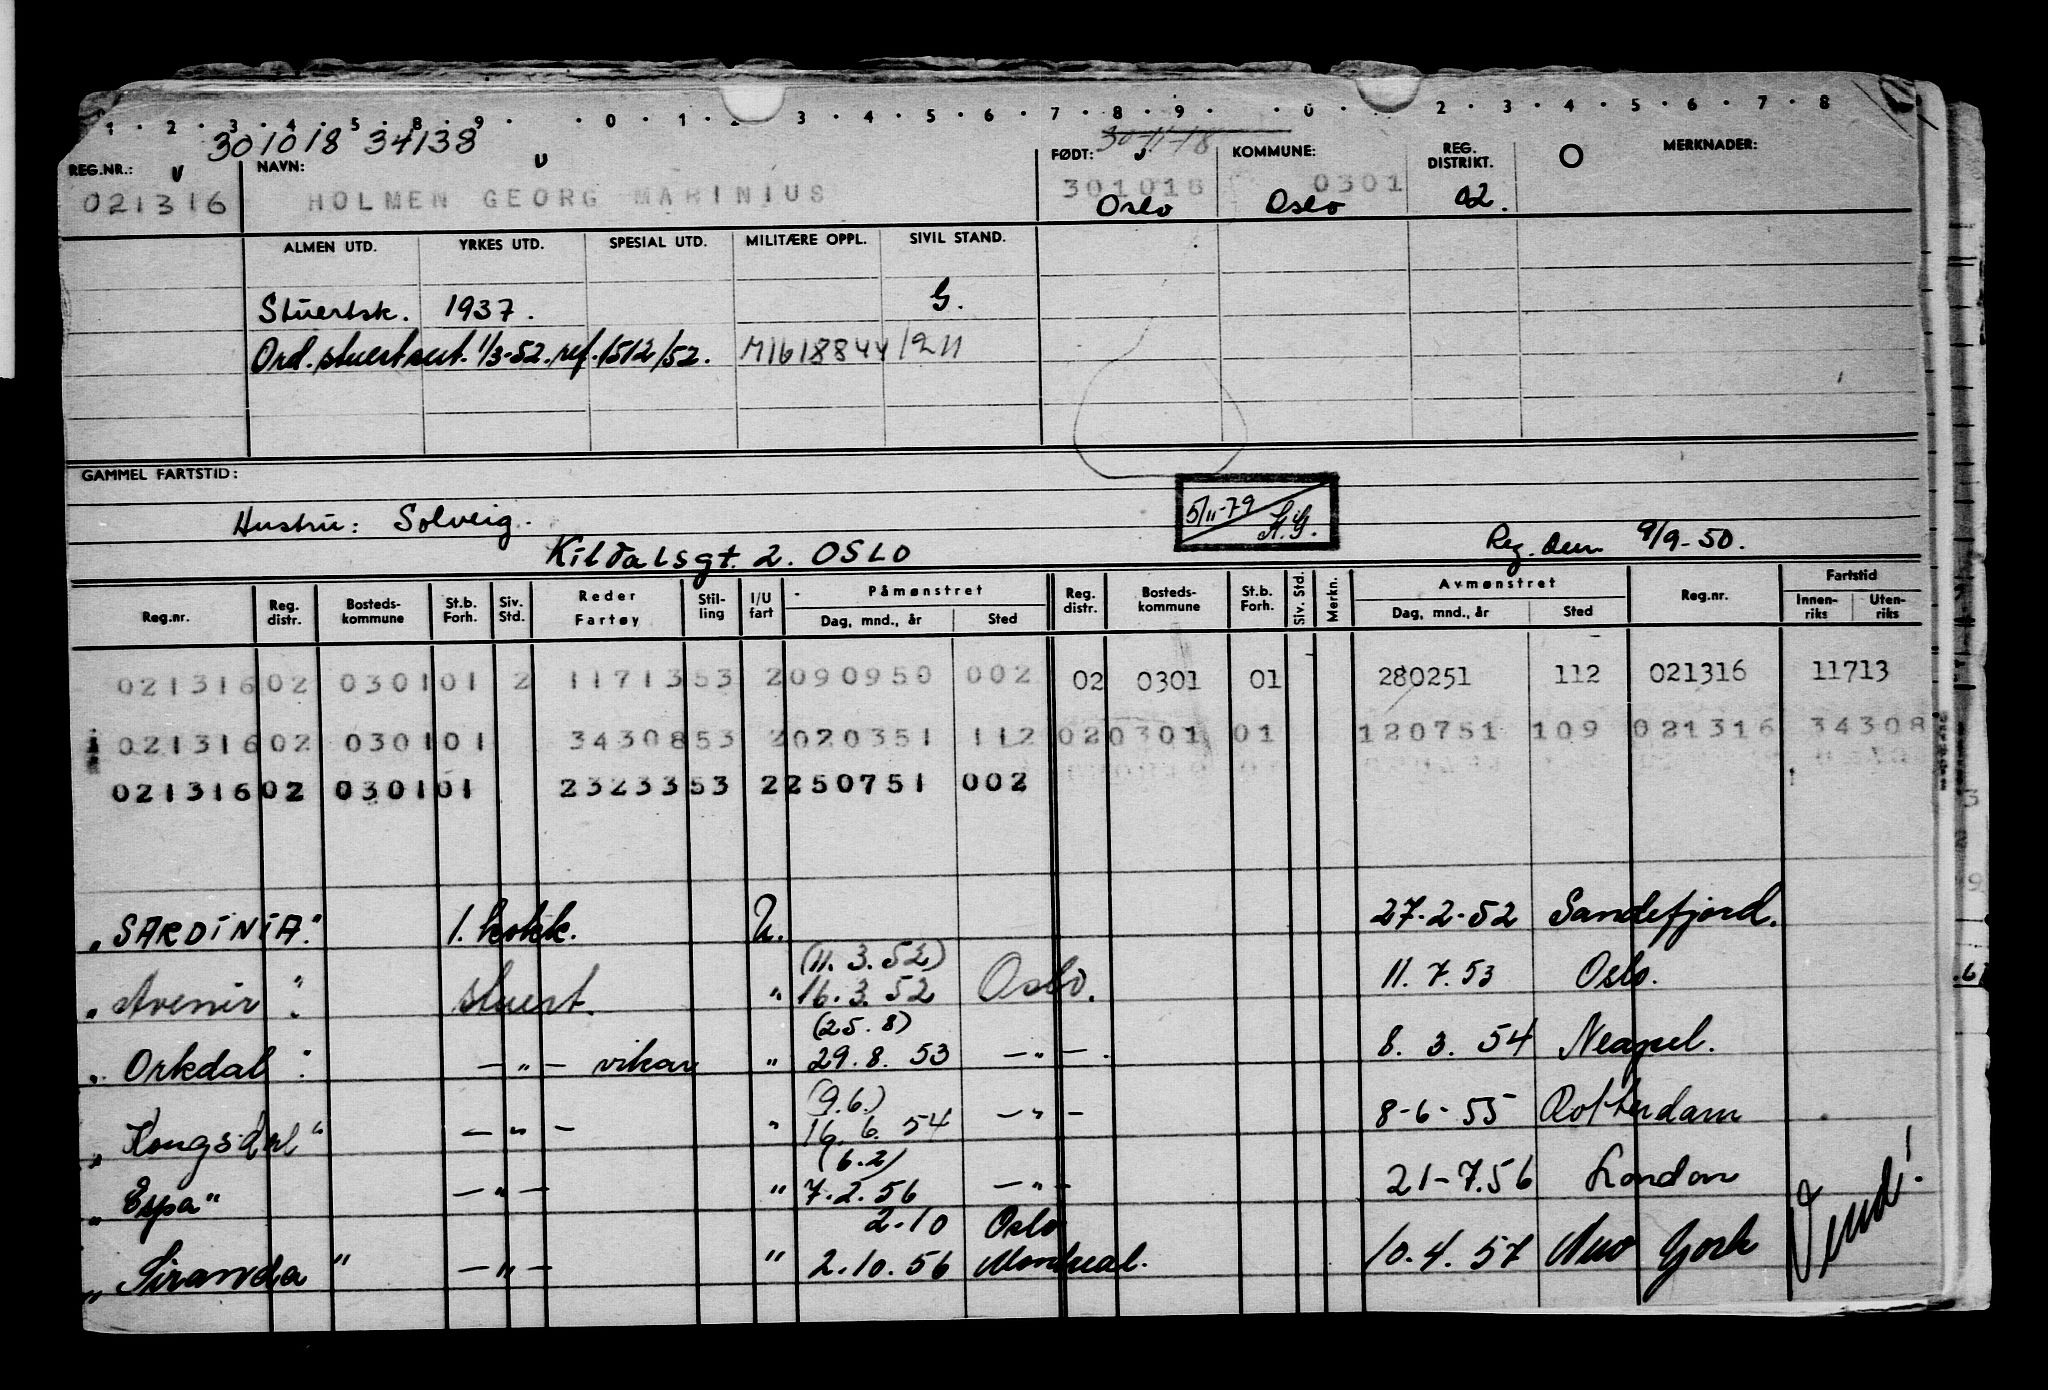 1 . 2 . 3 . 4 . 5 . 8 . 9 . . 0 . 1 . 3 . 4 . 5 . 6 . 7 . 8 . 9 . . 0 . 2 . 3 . 4 . 5 . 6 . 7 . 8
301018 34138 30-11-18
REG.NR.: NAVN: FØDT: KOMMUNE: REG. DISTRIKT. O MERKNADER:
021316 HOLMEN GEORG MARINIUS 301018 0301
Oslo Oslo 02.
ALMEN UTD. YRKES UTD. SPESIAL UTD. MILITÆRE OPPL. SIVIL STAND.
Stuertsk. 1937. G.
Ord. stuertsert. 1/3-52. ref. 1512/52. M1618844/211
GAMMEL FARTSTID:
Hustru: Solveig. 5/11-79 H.G.
Kildalsgt. 2. OSLO Reg. den 9/9-50.
Reg.nr. Reg. distr. Bosteds-kommune St.b. Forh. Siv. Std. Reder Fartøy Stil-ling I/U fart Påmønstret Dag, mnd., år Sted Reg. distr. Bosteds-kommune St.b. Forh. Siv. Std. Merkn. Avmønstret Dag, mnd., år Sted Reg.nr. Fartstid Innen-riks Uten-riks
021316 02 0301 01 2 11713 53 2 090950 002 02 0301 01 280251 112 021316 11713
021316 02 0301 01 34308 53 2 020351 112 02 0301 01 120751 109 021316 34308
021316 02 0301 01 23233 53 2 250751 002
"SARDINIA." 1. kokk. U. 27-2-52 Sandefjord.
(11. 3. 52)
"Avenir" stuert. " 16. 3. 52 Oslo. 11. 7. 53 Oslo.
(25. 8)
"Orkdal" — " — vikar " 29. 8. 53 — " — . 8. 3. 54 Neapel.
(9.6.)
"Kongsdal" — " — " 16. 6. 54 — " — 8-6-55 Rotterdam
(6.2)
"Espa" — " — " 7. 2. 56 — " — 21-7.56 London
2-10 Oslo
"Siranda" — " — " 2. 10. 56 Montreal. 10. 4. 57 New York
Vend!